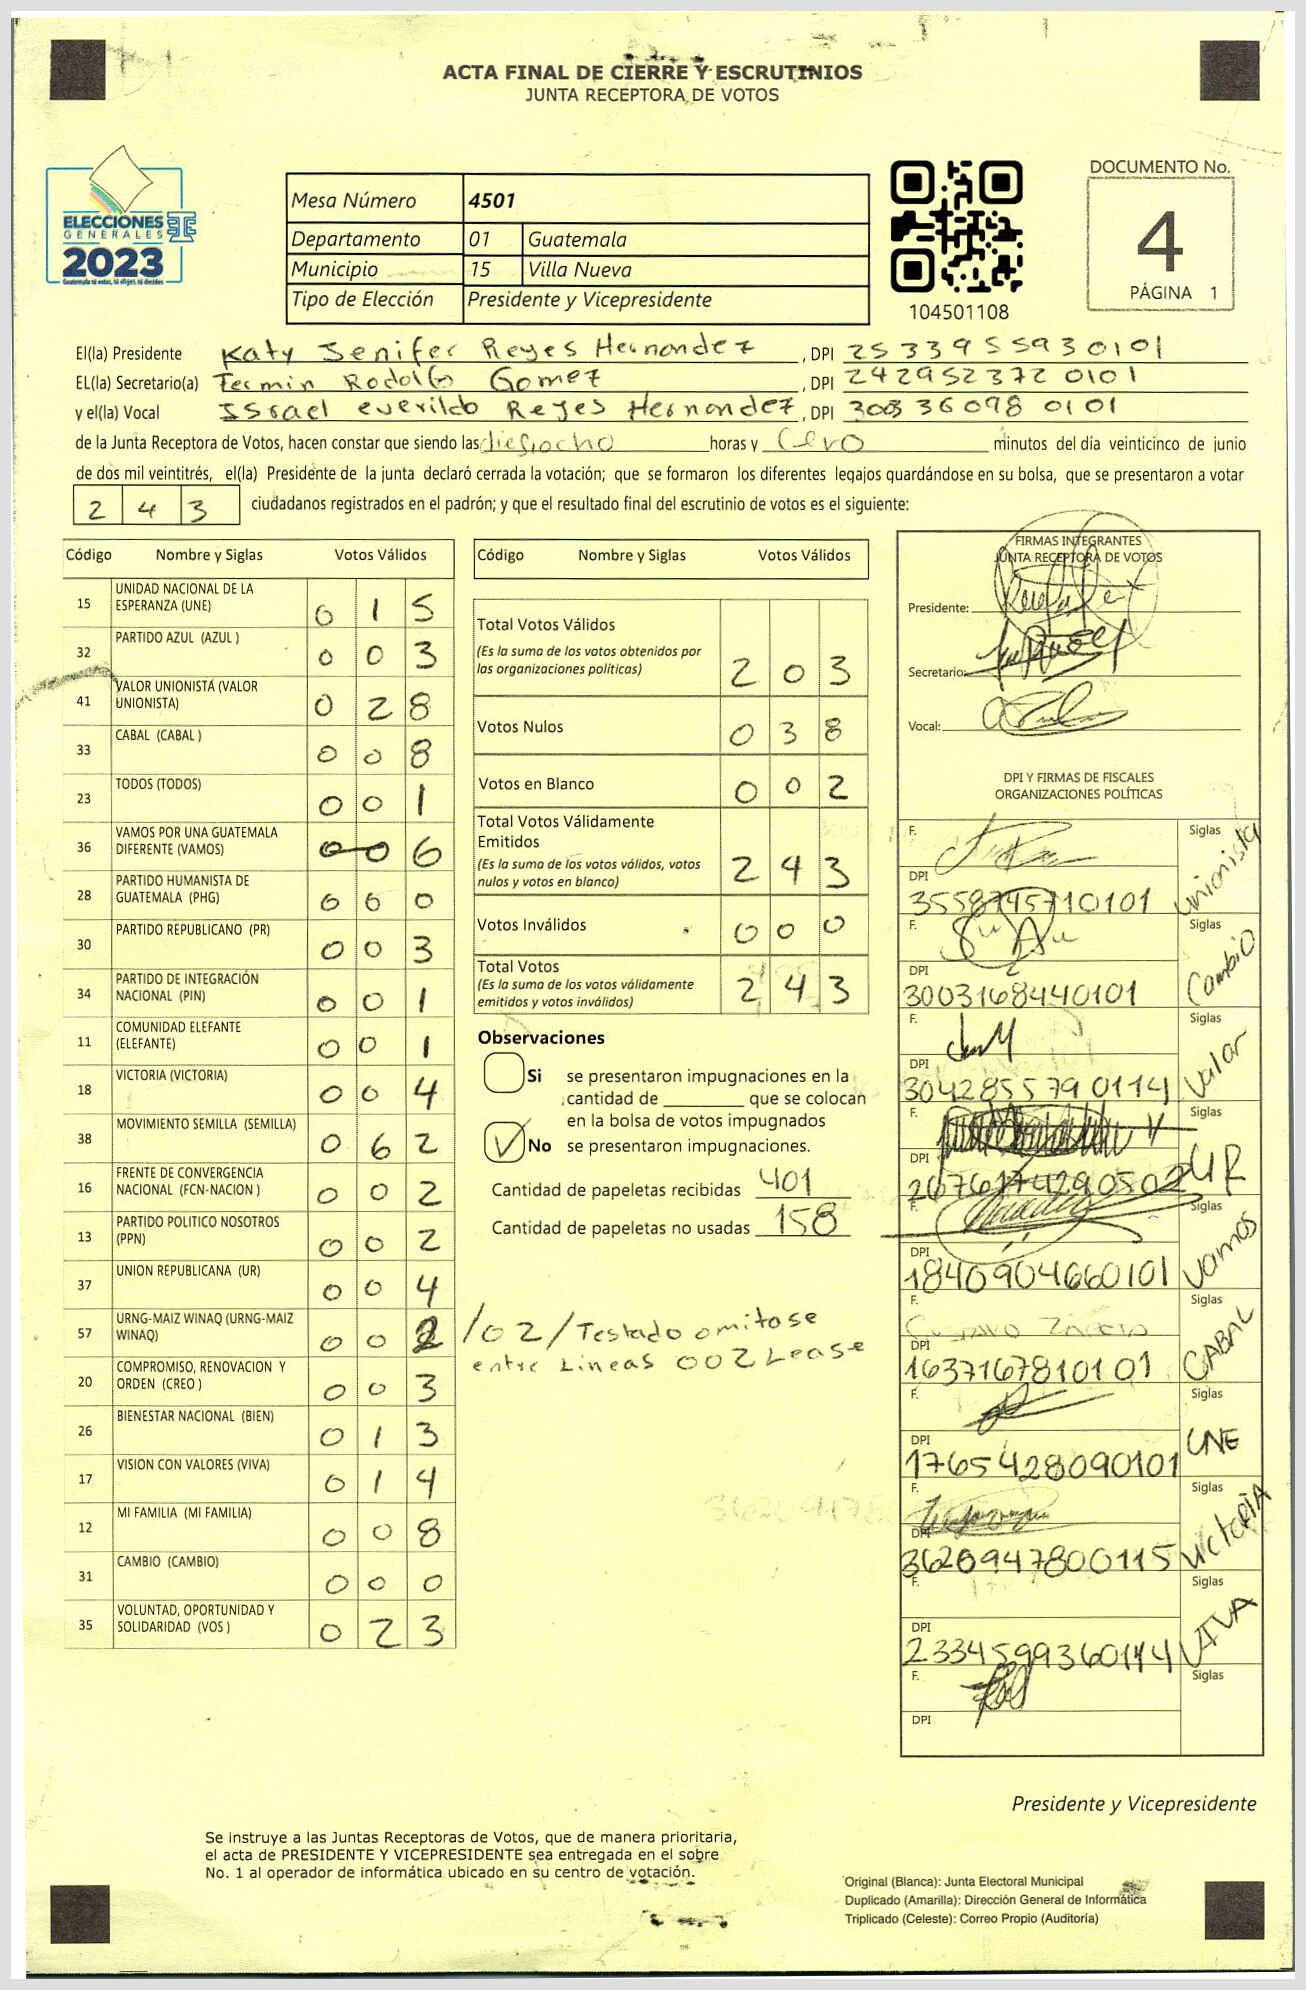 ACTA FINAL DE CIERRE Y ESCRUTINIOS
JUNTA RECEPTORA DE VOTOS
ELECCIONES
GENERALES
2023
Guatemala tú votas, tú eliges, tú decides
Mesa Número 4501
Departamento 01 Guatemala
Municipio 15 Villa Nueva
Tipo de Elección Presidente y Vicepresidente
104501108
DOCUMENTO No.
4
PÁGINA 1
El(la) Presidente Katy Jenifer Reyes Hernandez, DPI 2533955930101
EL(la) Secretario(a) Fermin Rodolfo Gomez, DPI 2429523720101
y el(la) Vocal Israel everildo Reyes Hernandez, DPI 3003360980101
de la Junta Receptora de Votos, hacen constar que siendo las dieciocho horas y Cero minutos del día veinticinco de junio
de dos mil veintitrés, el(la) Presidente de la junta declaró cerrada la votación; que se formaron los diferentes legajos guardándose en su bolsa, que se presentaron a votar
243 ciudadanos registrados en el padrón; y que el resultado final del escrutinio de votos es el siguiente:
Código Nombre y Siglas Votos Válidos
15 UNIDAD NACIONAL DE LA ESPERANZA (UNE) 015
32 PARTIDO AZUL (AZUL ) 003
41 VALOR UNIONISTA (VALOR UNIONISTA) 028
33 CABAL (CABAL ) 008
23 TODOS (TODOS) 001
36 VAMOS POR UNA GUATEMALA DIFERENTE (VAMOS) 006
28 PARTIDO HUMANISTA DE GUATEMALA (PHG) 000
30 PARTIDO REPUBLICANO (PR) 003
34 PARTIDO DE INTEGRACIÓN NACIONAL (PIN) 001
11 COMUNIDAD ELEFANTE (ELEFANTE) 001
18 VICTORIA (VICTORIA) 004
38 MOVIMIENTO SEMILLA (SEMILLA) 062
16 FRENTE DE CONVERGENCIA NACIONAL (FCN-NACION ) 002
13 PARTIDO POLITICO NOSOTROS (PPN) 002
37 UNION REPUBLICANA (UR) 004
57 URNG-MAIZ WINAQ (URNG-MAIZ WINAQ) 002
20 COMPROMISO, RENOVACION Y ORDEN (CREO ) 003
26 BIENESTAR NACIONAL (BIEN) 013
17 VISION CON VALORES (VIVA) 014
12 MI FAMILIA (MI FAMILIA) 008
31 CAMBIO (CAMBIO) 000
35 VOLUNTAD, OPORTUNIDAD Y SOLIDARIDAD (VOS ) 023
Código Nombre y Siglas Votos Válidos
Total Votos Válidos 203
(Es la suma de los votos obtenidos por
las organizaciones políticas)
Votos Nulos 038
Votos en Blanco 002
Total Votos Válidamente
Emitidos 243
(Es la suma de los votos válidos, votos
nulos y votos en blanco)
Votos Inválidos 000
Total Votos 243
(Es la suma de los votos válidamente
emitidos y votos inválidos)
Observaciones
Si se presentaron impugnaciones en la
cantidad de ________ que se colocan
en la bolsa de votos impugnados
No se presentaron impugnaciones.
Cantidad de papeletas recibidas 401
Cantidad de papeletas no usadas 158
/02/Testado omitase
entre Lineas 002 Lease
FIRMAS INTEGRANTES
JUNTA RECEPTORA DE VOTOS
Presidente:
Secretario:
Vocal:
DPI Y FIRMAS DE FISCALES
ORGANIZACIONES POLÍTICAS
F. Siglas unionista
DPI 3558745710101
F. Siglas Cambio
DPI 3003168440101
F. Siglas Valor
DPI 3042855790114
F. Siglas UR
DPI 2676174290502
F. Siglas Vamos
DPI 1840904660101
F. Siglas CABAL
DPI 1637167810101
F. Siglas UNE
DPI 1765428090101
F. Siglas Victoria
DPI 3620947800115
F. Siglas VIVA
DPI 2334599360114
F. Siglas
DPI
Presidente y Vicepresidente
Se instruye a las Juntas Receptoras de Votos, que de manera prioritaria,
el acta de PRESIDENTE Y VICEPRESIDENTE sea entregada en el sobre
No. 1 al operador de informática ubicado en su centro de votación.
Original (Blanca): Junta Electoral Municipal
Duplicado (Amarilla): Dirección General de Informática
Triplicado (Celeste): Correo Propio (Auditoría)